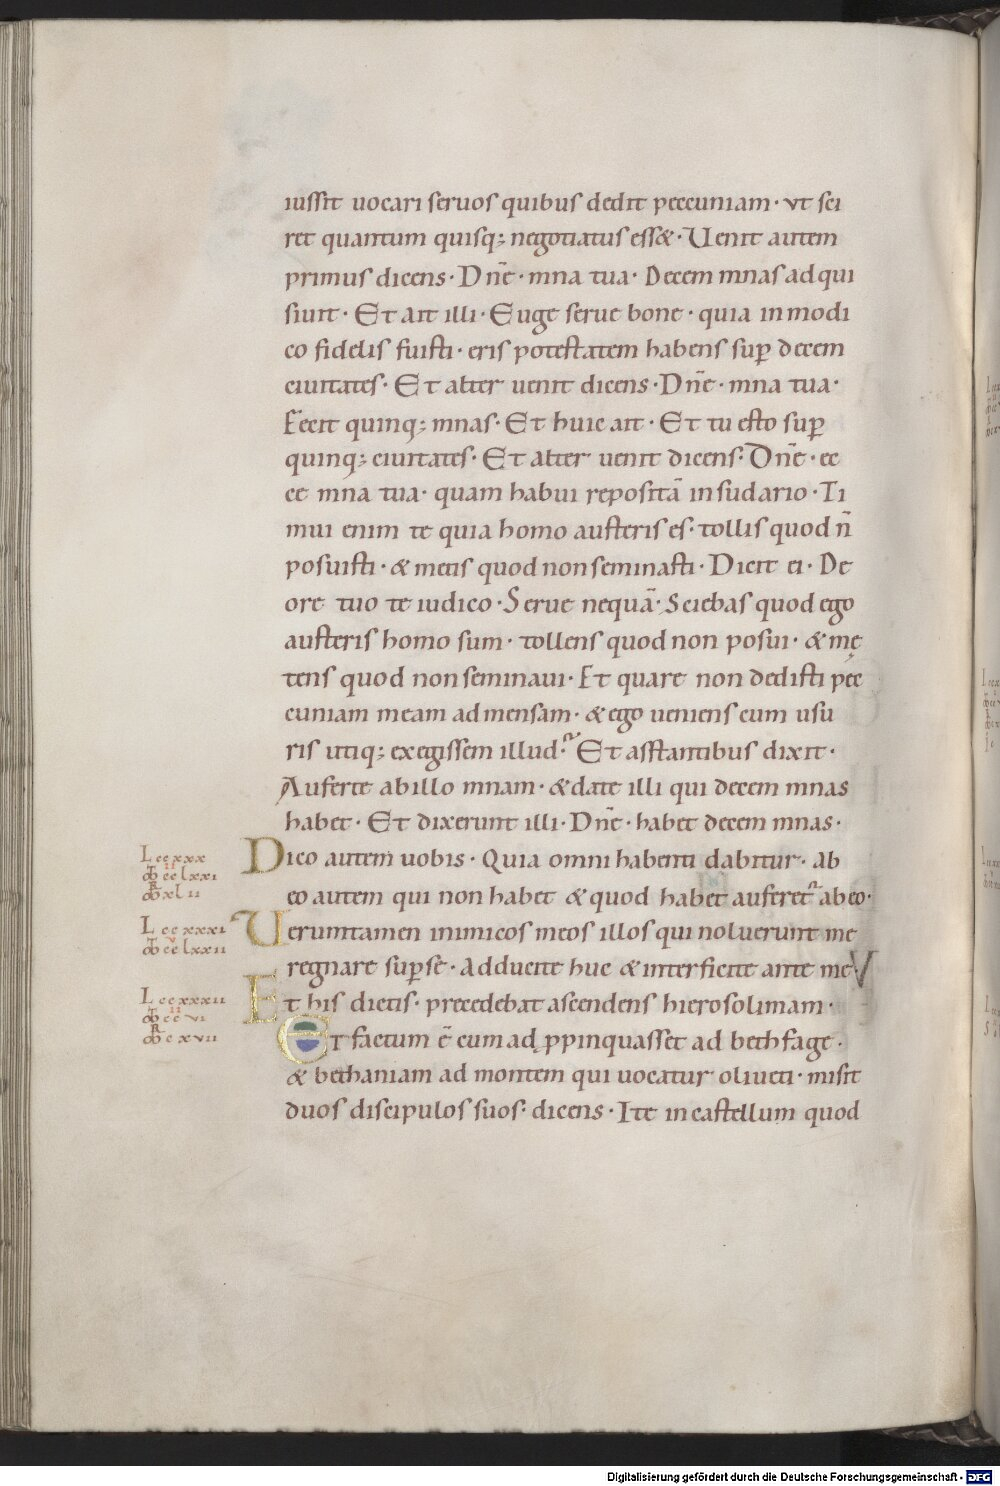 iussit uocari seruos quibus dedit peccuniam · ut sci
ret quantum quisq; negotiatus ess& · Uenit autem
primus dicens · Dn̄e · mna tua · Decem mnas adqui
siuit · Et ait illi · Euge serue bone · quia in modi
co fidelis fuisti · eris potestatem habens sup̄ decem
ciuitates · Et alter uenit dicens · Dn̄e · mna tua ·
Fecit quinq; mnas · Et huic ait · Et tu esto sup̄
quinq; ciuitates · Et alter uenit dicens · Dn̄e · ec
ce mna tua · quam habui repositā in sudario · Ti
mui enim te quia homo austeris es · tollis quod n̄
posuisti · & metis quod non seminasti · Dicit ei · De
ore tuo te iudico · Serue nequā · Sciebas quod ego
austeris homo sum · tollens quod non posui · & mę
tens quod non seminaui · Et quare non dedisti pec
cuniam meam ad mensam · & ego ueniens cum usu
ris utiq; exegissem illud · Et asstantibus dixit ·
Auferte ab illo mnam · & date illi qui decem mnas
habet · Et dixerunt illi · Dn̄e · habet decem mnas ·
L ccxxx
cclxxi
xlii
Dico autem uobis · Quia omni habenti dabitur · Ab
eo autem qui non habet & quod habet auferet᷑ ab eo ·
L ccxxxi
cclxxii
Ueruntamen inimicos meos illos qui noluerunt me
regnare sup̄ se · Adducite huc & interficite ante me
L ccxxxii
ccvi
cxvii
Et his dictis · precedebat ascendens hierosolimam ·
Et factum ē cum adp̱pinquasset ad bethfage ·
& bethaniam ad montem qui uocatur oliueti · misit
duos discipulos suos · dicens · Ite in castellum quod
Digitalisierung gefördert durch die Deutsche Forschungsgemeinschaft - DFG